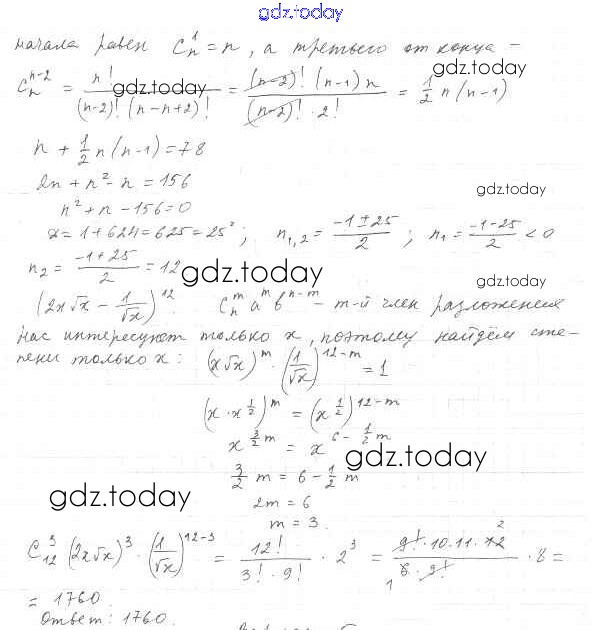 gdz.today
начала равен C_n^1 = n, а третьего от конца –
gdz.today
C_n^{n-2} = n! / ((n-2)! (n-n+2)!) = ((n-2)! (n-1) n) / ((n-2)! · 2!) = 1/2 n(n-1)
gdz.today
n + 1/2 n(n-1) = 78
2n + n² - n = 156
gdz.today
n² + n - 156 = 0
D = 1 + 624 = 625 = 25²; n_{1,2} = (-1 ± 25)/2; n_1 = (-1-25)/2 < 0
n_2 = (-1+25)/2 = 12
gdz.today
gdz.today
(2x√x - 1/√x)^{12}. C_n^m a^m b^{n-m} – m-й член разложения
Нас интересуют только x, поэтому найдём сте-
пени только x: (x√x)^m · (1/√x)^{12-m} = 1
(x · x^{1/2})^m = (x^{1/2})^{12-m}
x^{3/2 m} = x^{6 - 1/2 m}
gdz.today
3/2 m = 6 - 1/2 m
gdz.today
2m = 6
m = 3.
C_{12}^3 (2x√x)^3 · (1/√x)^{12-3} = 12!/(3! · 9!) · 2^3 = (9! · 10 · 11 · 12 2)/(1 6 · 9!) · 8 =
= 1760.
Ответ: 1760.